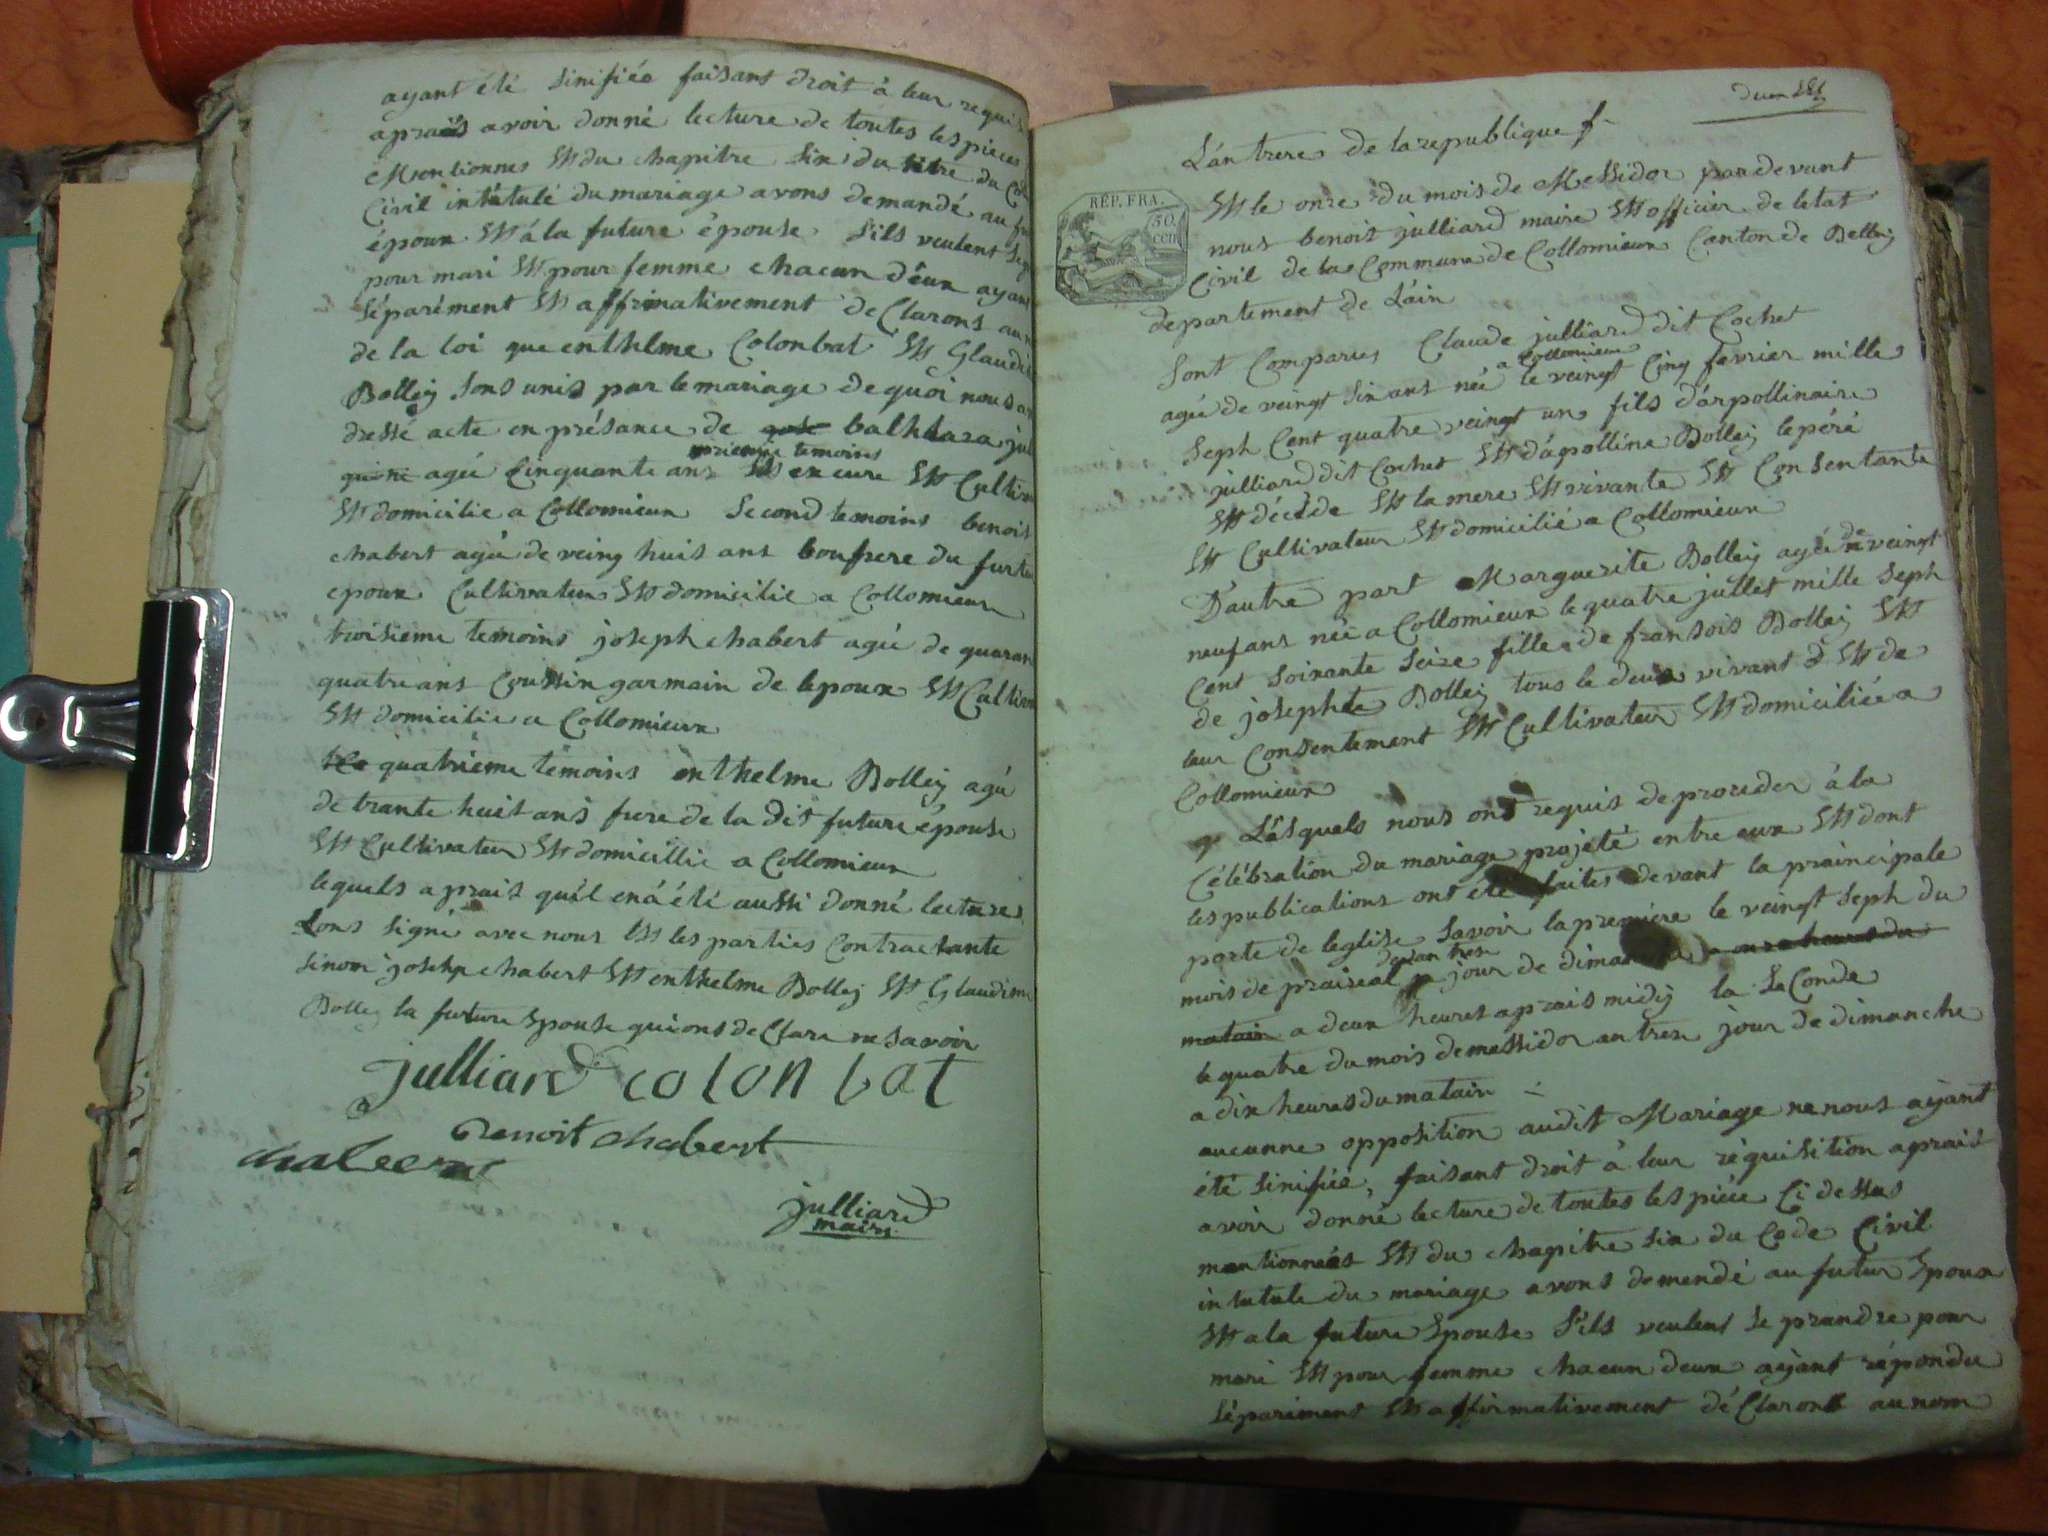 ayant été sinifiée faisant droit à leur requi
apraès avoir donné lecture de toutes les pieces
Mentionnes Et du chapitre six du titre du Co
Civil intitulé du mariage avons demandé au fu
époux Et á la future épouse Sils veulent Se p
pour mari Et pour femme chacun déux ayant
séparément Et affirmativement de Clarons au n
de la loi que enthelme Colonbat Et Glaudi
Bolley sons unis par le mariage de quoi nous a
dressé acte en présance de balthaza jul
premier temoins
agée Cinquante ans Et Cultiv
Et domicilie a Collomieux Second temoins benois
chabert agée de veing huis ans boufrere du furtu
epoux Cultivateur Et domicilie a Collomieux
troisieme temoins joseph chabert agée de quaran
quatre ans Coussin garmain de lepoux Et Cultiva
Et domicilie a Collomieux
quatrieme temoins enthelme Bolley agée
de trante huit ans frere de la dit future épouse
Et Cultivateur Et domicillie a Collomieux
lequels aprais quél en á été aussi donné lectures
Sons signé avec nous Et les parties Contractante
sinon joseph chabert Et enthelme Bolley Et Glaudine
Bolley la future Epouse qui ons de Clare ne savoir
julliard colonbat
Benoit chabert
chabert
julliard
maire
RÉP. FRA.
50
cen
L'an treze de la republique f-
Et le onze du mois de Messidor par devant
nous benoit julliard maire Et officier de letat
Civil de la Commune de Collomieux Canton de Belley
departement de L'ain
Sont Comparus Claude julliard dit Cochet
a Collomieux
agée de veingt six ans née le veingt Cinq fevrier mille
Seph Cent quatre veingt un fils d'arpollinaire
julliard dit Cochet Et d'apolline Bolley le péré
Et décéde Et la mere Et vivante Et Consentante
Et Cultivateur Et domicilié a Collomieux
D'autre part Marguerite Bolley agée de veingt
neuf ans née a Collomieux le quatre jullet mille Seph
Cent Soixante Seize fille de fransois Bolley Et
de josephte Bolley tous le deux vivant Et de
leur Consentement Et Cultivateur Et domiciliée a
Collomieux
Lésquels nous ont requis de proceder á la
Célébration du mariage projété entre eux Et dont
les publications ont été faites devant la praincipale
porte de leglise Savoir la premiere le veingt Seph du
de lan treze
mois de praireal jour de dimanche a onze heures du
matain a deux heures aprais midy la Se Conde
le quatre du mois de messidor an treze jour de dimanche
a dix heures du matain
aucunne opposition audit Mariage ne nous aÿant
été sinifiée, faisant droit à leur réquisition aprais
avoir donné lecture de toutes les piéce Ci dessus
mentionneés Et du chapitre six du Code Civil
intutule du mariage avons demendé au futur Epoux
Et a la future Epouse Sils veulent se prandre pour
mari Et pour femme chacun deux aÿant répondu
séparément Et affirmativement dé Clarons au nom